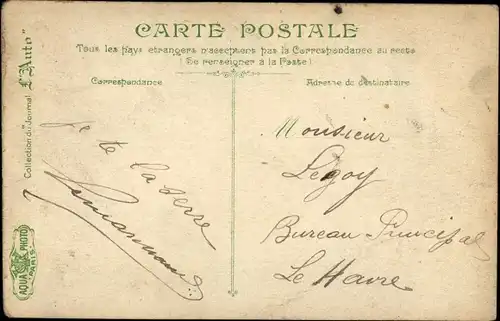 CARTE POSTALE
Tous les pays étrangers n'acceptent pas la Correspondance au recto
(Se renseigner à la Poste)
Correspondance
Adresse du destinataire
Collection du Journal "L'Auto"
AQUA PHOTO
PARIS
je te
la serre
Monsieur
Legoy
Bureau Principal
Le Havre